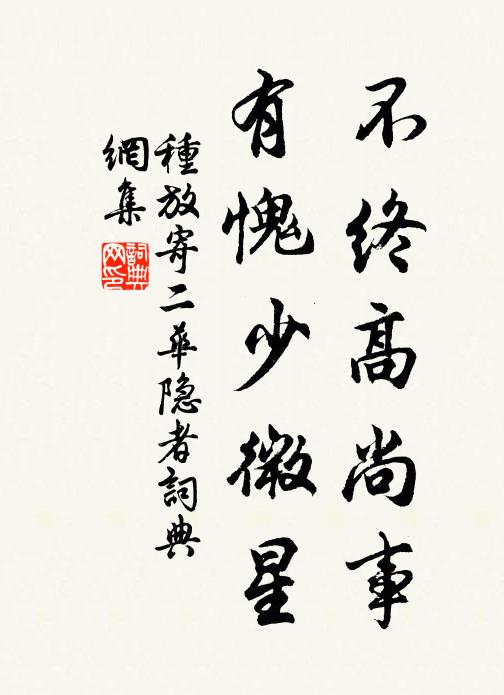 不终高尚事
有愧少微星
種放寄二華隐者詞典
網集
詞典網印